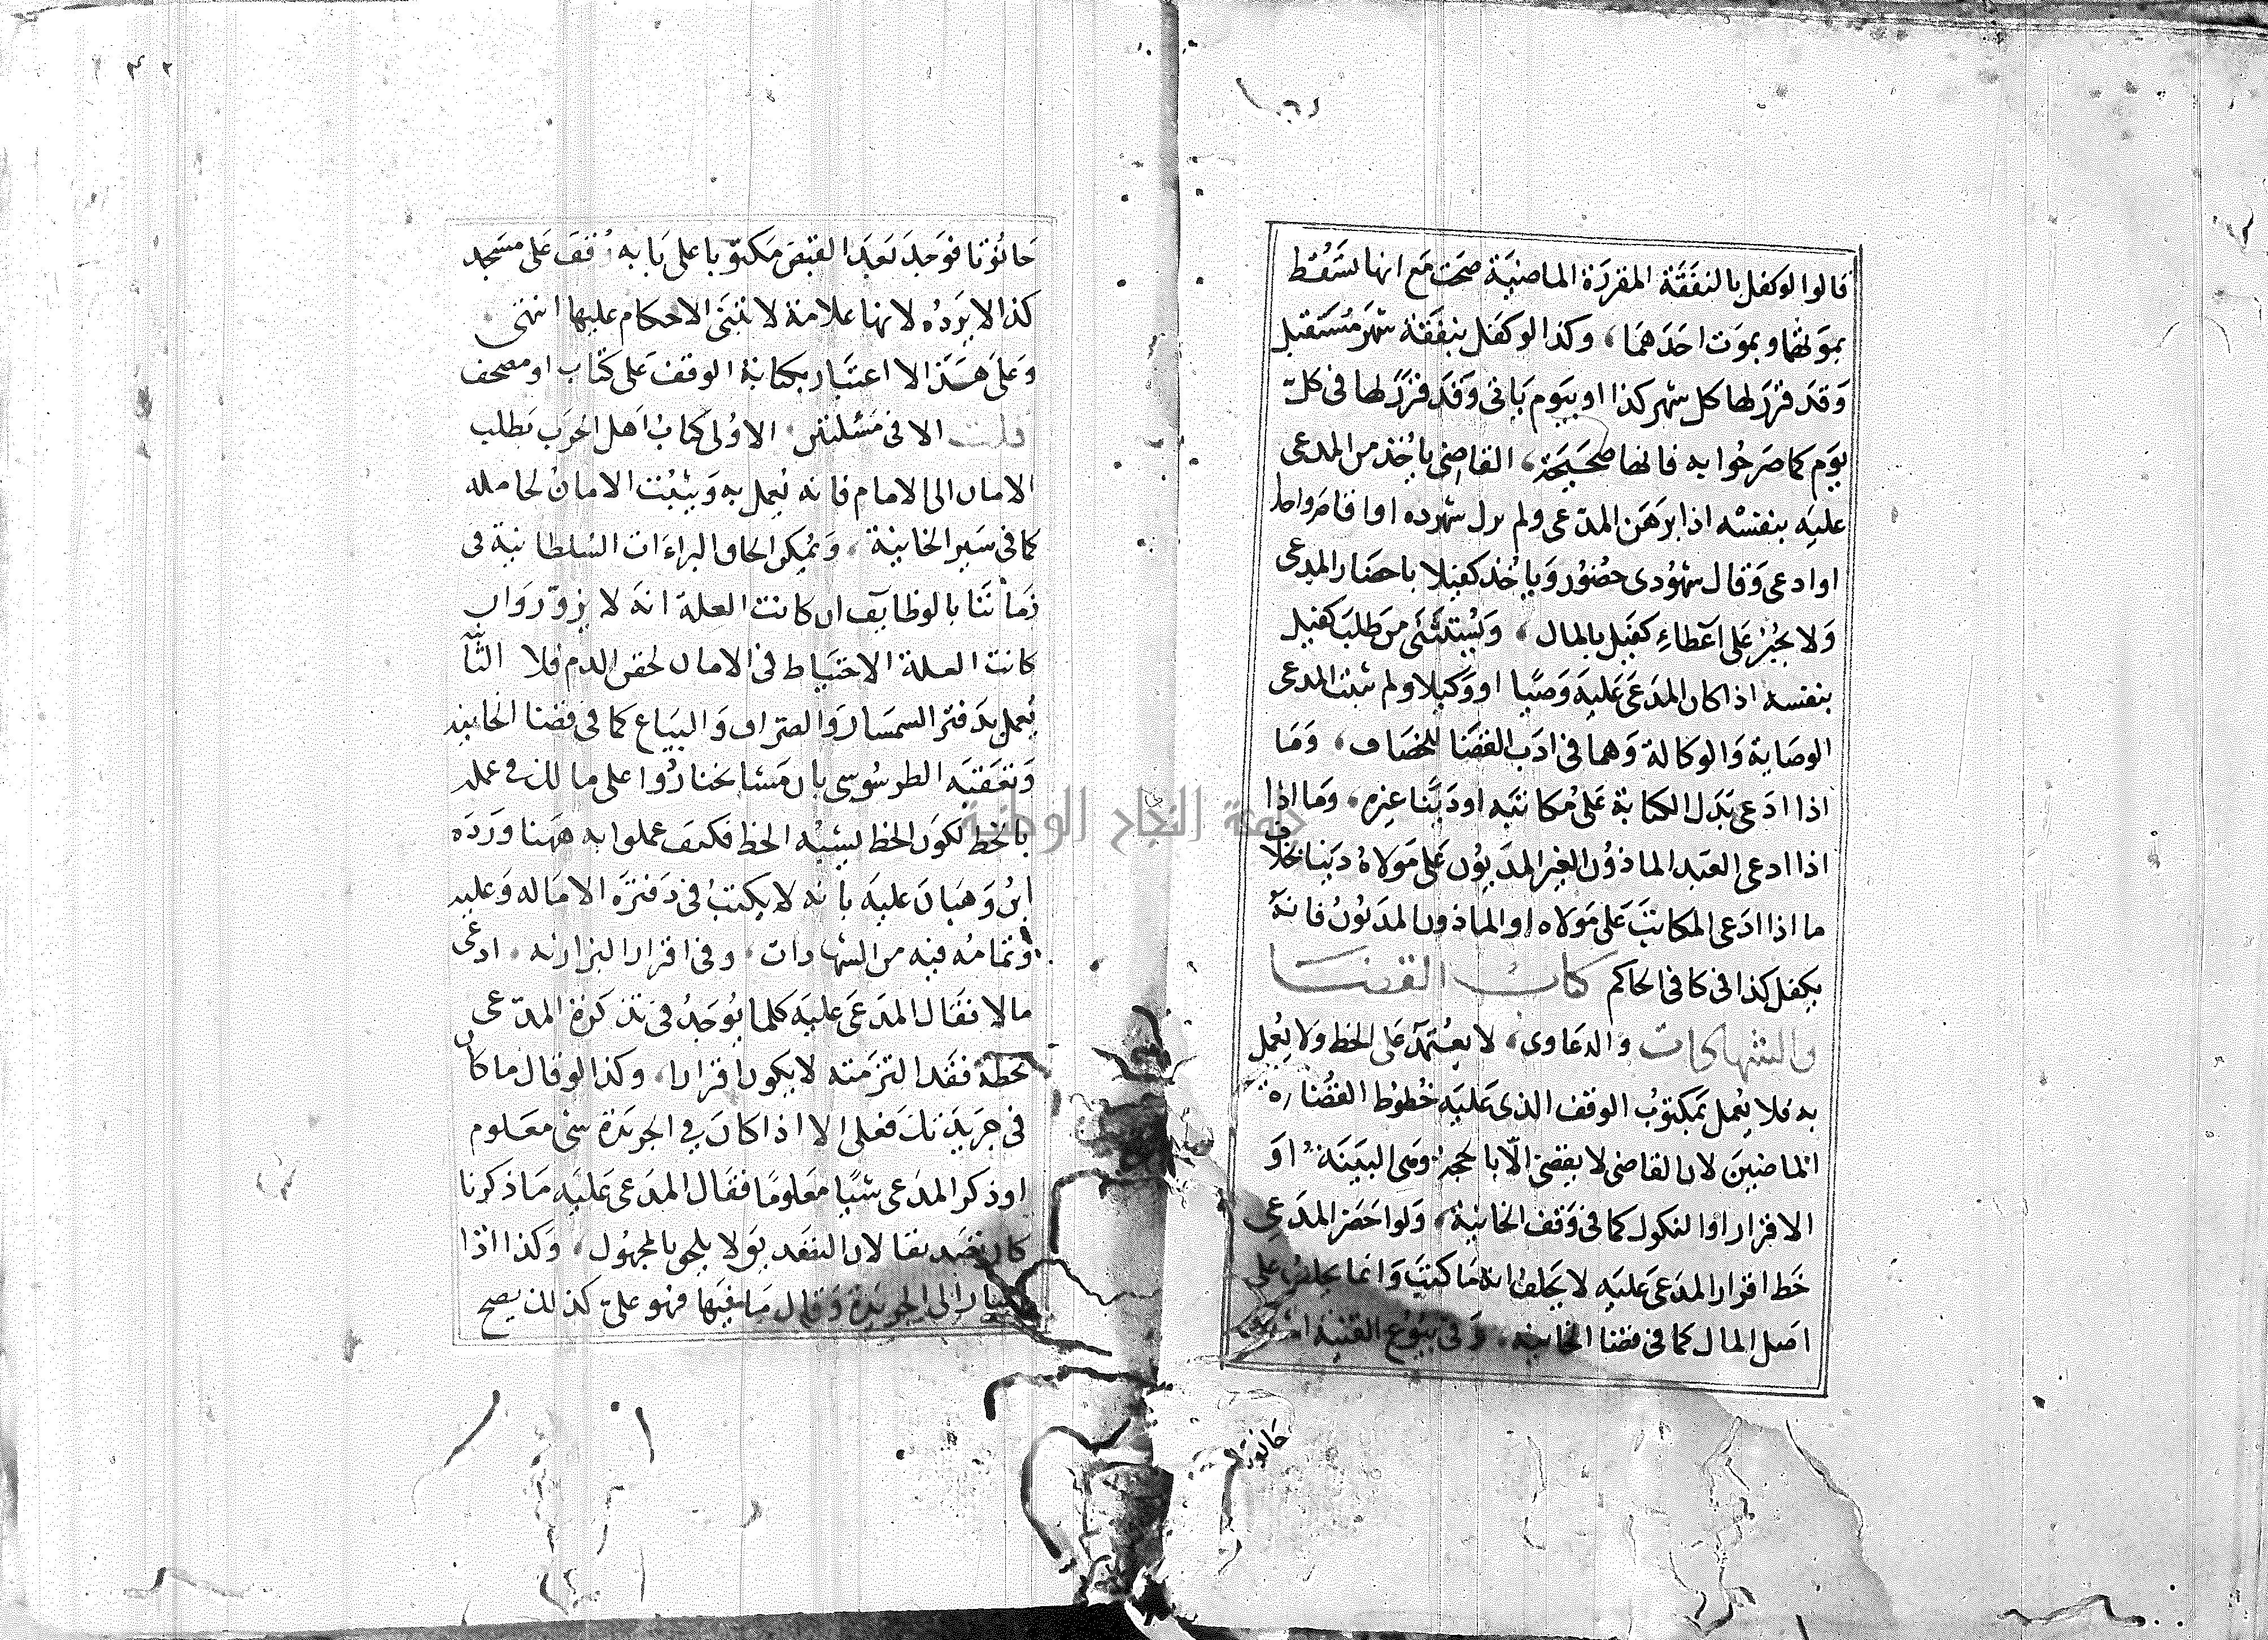 قالوا لو كفل بالنفقة المقررة الماضية صحت مع انها تسقط
بموتهما وبموت احدهما، وكذا لو كفل بنفقة شهر مستقبل
وقد قرر لها كل شهر كذا او بيوم ياتي وقد قرر لها في كل
يوم كما صرحوا به فانها صحيحة، القاضي ياخذ من المدعى
عليه بنفسه اذا برهن المدعي ولم يزل شهوده او اقام واحدا
او ادعى وقال شهودي حضور وياخذ كفيلا باحضار المدعى
ولا يجبر على اعطاء كفيل بالمال، ويستثنى من طلب كفيل
بنفسه اذا كان المدعى عليه وصيا او وكيلا ولم يثبت المدعي
الوصاية والوكالة وهما في ادب القضا للخصاف، وما
اذا ادعى بدل الكتابة على مكاتبه او دينا غيره، وما اذا
اذا ادعى العبد الماذون الغير المديون على مولاه دينا بخلاف
ما اذا ادعى المكاتب على مولاه او الماذون المديون فانه
يكفل كذا في كافي الحاكم كتاب القضا
والشهادات والدعاوى، لا يعتمد على الخط ولا يعمل
به فلا يعمل بمكتوب الوقف الذي عليه خطوط القضاة
الماضيين لان القاضي لا يقضي الا بالحجة وهي البينة او
الاقرار او النكول كما في وقف الخانية، ولو احضر المدعي
خط اقرار المدعى عليه لا يحلف انه ما كتب وانما يحلف على
اصل المال كما في قضا الخانية، وفي بيوع القنية اشترى
حانوتا
حانوتا فوجد بعد القبض مكتوبا على بابه وقف على مسجد
كذا لا يرده لانها علامة لا تبتنى الاحكام عليها انتهى
وعلى هذا لا اعتبار بكتابة الوقف على كتاب او مصحف
قلت الا في مسئلتين الاولى كتاب اهل الحرب بطلب
الامان الى الامام فانه يعمل به ويثبت الامان لحامله
كما في سير الخانية، ويمكن الحاق البراءات السلطانية في
زماننا بالوظايف ان كانت العلة انه لا يزور وان
كانت العلة الاحتياط في الامان لحقن الدم فلا الثا
يعمل بدفتر السمسار والصراف والبياع كما في قضا الخانية
وتعقبه الطرسوسي بان مشايخنا ردوا على مالك في عمله
بالخط لكون الخط يشبه الخط فكيف عملوا به ههنا ورده
ابن وهبان عليه بانه لا يكتب في دفتره الا ماله وعليه
وتمامه فيه من الشهادات، وفي اقرار البزازية، ادعى
مالا فقال المدعى عليه كلما يوجد في تذكرة المدعي
بخطه فقد التزمته لا يكون اقرارا، وكذا لو قال ما كان
في جريدتك فعلي الا اذا كان في الجريدة شي معلوم
او ذكر المدعي شيا معلوما فقال المدعى عليه ما ذكرنا
كان تصديقا لان التصديق لا يلحق بالمجهول، وكذا اذا
اشار الى الجريدة وقال ما فيها فهو علي كذلك يصح
جامعة النجاح الوطنية